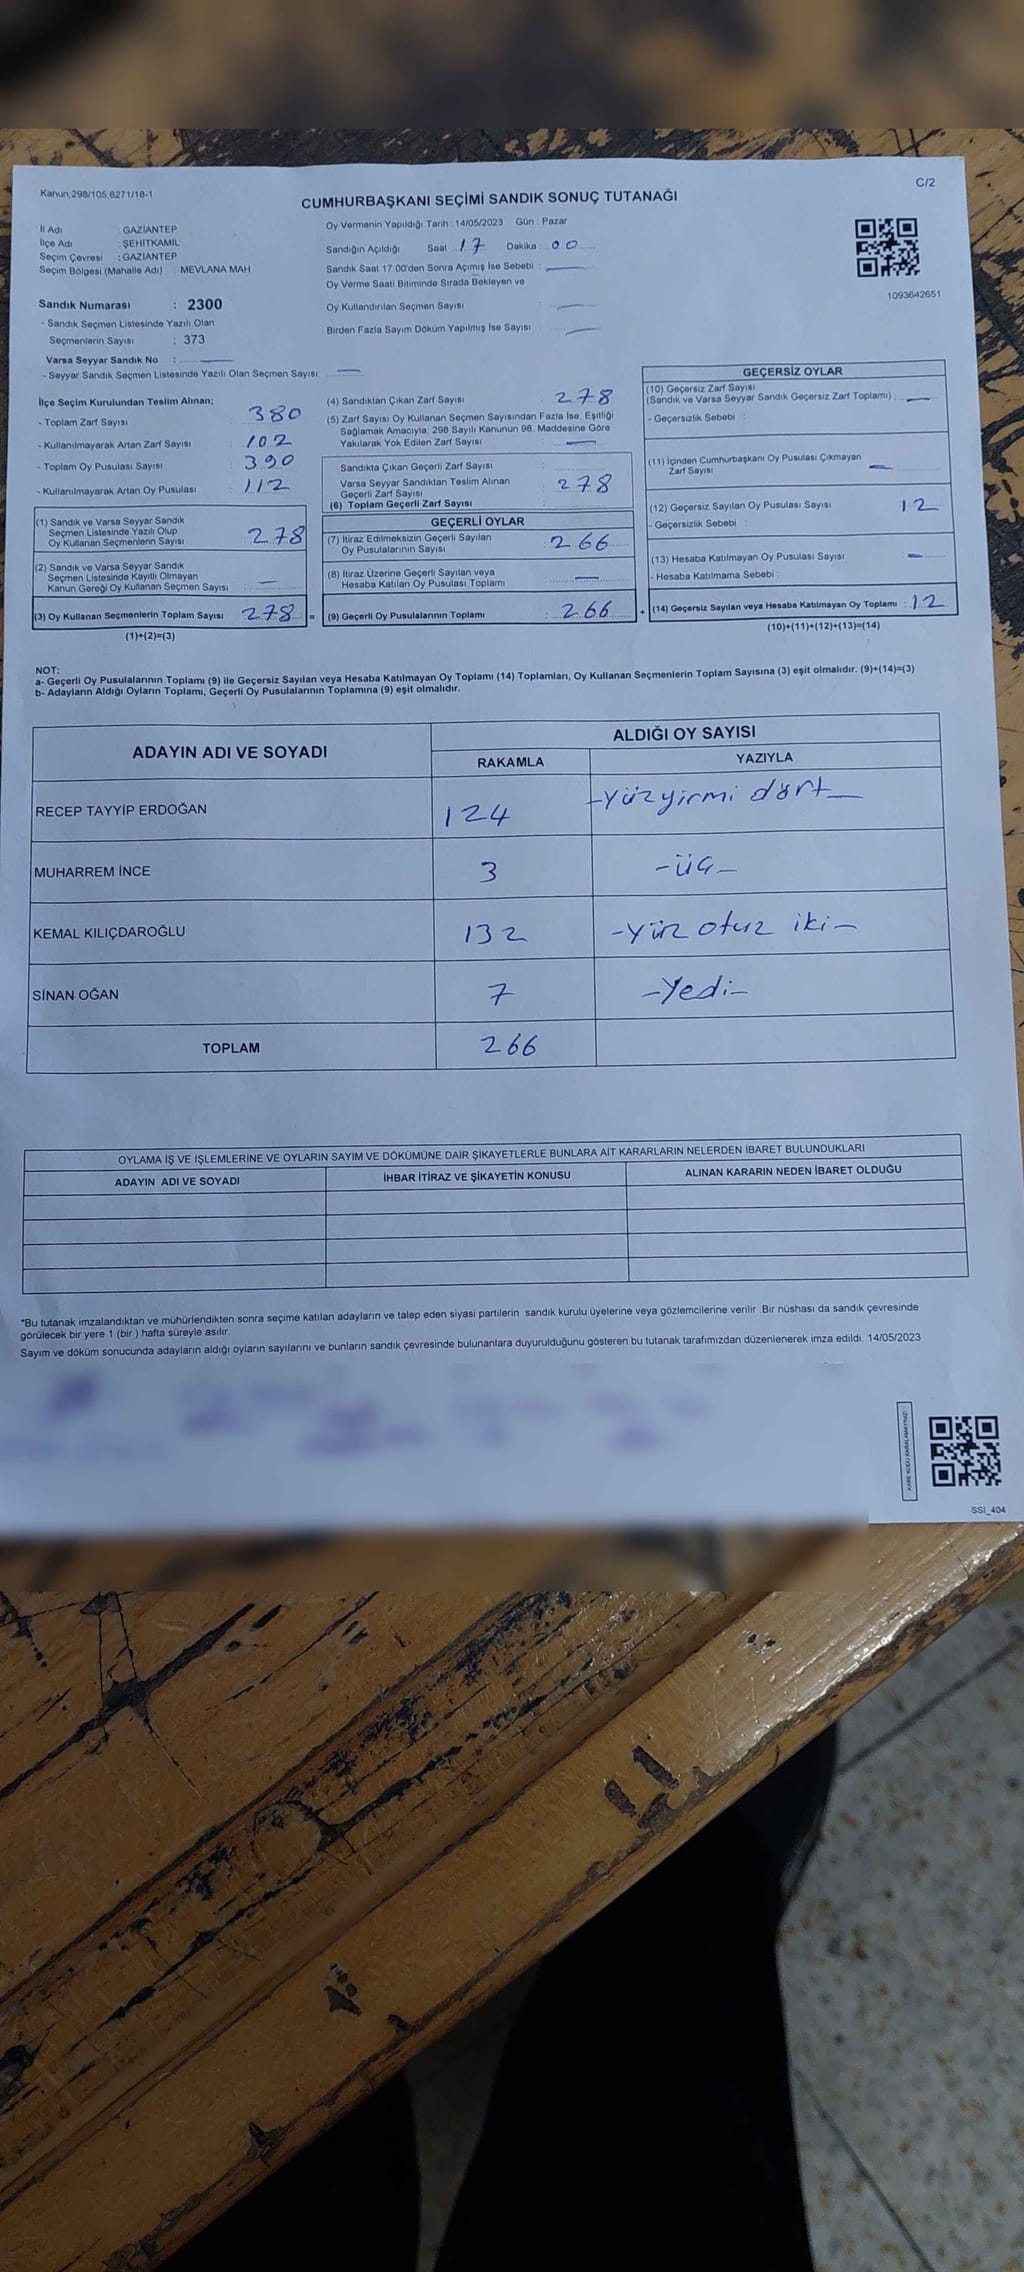 Kanun;298/105,6271/18-1
C/2
CUMHURBAŞKANI SEÇİMİ SANDIK SONUÇ TUTANAĞI
İl Adı : GAZİANTEP
İlçe Adı : ŞEHİTKAMİL
Seçim Çevresi : GAZİANTEP
Seçim Bölgesi (Mahalle Adı) : MEVLANA MAH
Oy Vermenin Yapıldığı Tarih : 14/05/2023 Gün : Pazar
Sandığın Açıldığı Saat 17 Dakika : 00
Sandık Saat 17:00'den Sonra Açımış İse Sebebi : —
Oy Verme Saati Bitiminde Sırada Bekleyen ve
Oy Kullandırılan Seçmen Sayısı : —
Birden Fazla Sayım Döküm Yapılmış İse Sayısı : —
1093642651
Sandık Numarası : 2300
- Sandık Seçmen Listesinde Yazılı Olan
Seçmenlerin Sayısı : 373
Varsa Seyyar Sandık No : —
- Seyyar Sandık Seçmen Listesinde Yazılı Olan Seçmen Sayısı: —
İlçe Seçim Kurulundan Teslim Alınan;
- Toplam Zarf Sayısı : 380
- Kullanılmayarak Artan Zarf Sayısı : 102
- Toplam Oy Pusulası Sayısı : 390
- Kullanılmayarak Artan Oy Pusulası : 112
(1) Sandık ve Varsa Seyyar Sandık
Seçmen Listesinde Yazılı Olup
Oy Kullanan Seçmenlerin Sayısı : 278
(2) Sandık ve Varsa Seyyar Sandık
Seçmen Listesinde Kayıtlı Olmayan
Kanun Gereği Oy Kullanan Seçmen Sayısı : —
(3) Oy Kullanan Seçmenlerin Toplam Sayısı : 278 =
(1)+(2)=(3)
(4) Sandıktan Çıkan Zarf Sayısı : 278
(5) Zarf Sayısı Oy Kullanan Seçmen Sayısından Fazla İse, Eşitliği
Sağlamak Amacıyla; 298 Sayılı Kanunun 98. Maddesine Göre
Yakılarak Yok Edilen Zarf Sayısı : —
Sandıkta Çıkan Geçerli Zarf Sayısı :
Varsa Seyyar Sandıktan Teslim Alınan
Geçerli Zarf Sayısı : 278
(6) Toplam Geçerli Zarf Sayısı
GEÇERLİ OYLAR
(7) İtiraz Edilmeksizin Geçerli Sayılan
Oy Pusulalarının Sayısı : 266
(8) İtiraz Üzerine Geçerli Sayılan veya
Hesaba Katılan Oy Pusulası Toplamı : —
(9) Geçerli Oy Pusulalarının Toplamı : 266 +
GEÇERSİZ OYLAR
(10) Geçersiz Zarf Sayısı
(Sandık ve Varsa Seyyar Sandık Geçersiz Zarf Toplamı) : —
- Geçersizlik Sebebi :
(11) İçinden Cumhurbaşkanı Oy Pusulası Çıkmayan
Zarf Sayısı : —
(12) Geçersiz Sayılan Oy Pusulası Sayısı : 12
- Geçersizlik Sebebi :
(13) Hesaba Katılmayan Oy Pusulası Sayısı : —
- Hesaba Katılmama Sebebi :
(14) Geçersiz Sayılan veya Hesaba Katılmayan Oy Toplamı : 12
(10)+(11)+(12)+(13)=(14)
NOT:
a- Geçerli Oy Pusulalarının Toplamı (9) ile Geçersiz Sayılan veya Hesaba Katılmayan Oy Toplamı (14) Toplamları, Oy Kullanan Seçmenlerin Toplam Sayısına (3) eşit olmalıdır. (9)+(14)=(3)
b- Adayların Aldığı Oyların Toplamı, Geçerli Oy Pusulalarının Toplamına (9) eşit olmalıdır.
ADAYIN ADI VE SOYADI ALDIĞI OY SAYISI
RAKAMLA YAZIYLA
RECEP TAYYİP ERDOĞAN 124 -Yüzyirmi dört-
MUHARREM İNCE 3 -üç-
KEMAL KILIÇDAROĞLU 132 -yüz otuz iki-
SİNAN OĞAN 7 -Yedi-
TOPLAM 266
OYLAMA İŞ VE İŞLEMLERİNE VE OYLARIN SAYIM VE DÖKÜMÜNE DAİR ŞİKAYETLERLE BUNLARA AİT KARARLARIN NELERDEN İBARET BULUNDUKLARI
ADAYIN ADI VE SOYADI İHBAR İTİRAZ VE ŞİKAYETİN KONUSU ALINAN KARARIN NEDEN İBARET OLDUĞU
*Bu tutanak imzalandıktan ve mühürlendikten sonra seçime katılan adayların ve talep eden siyasi partilerin sandık kurulu üyelerine veya gözlemcilerine verilir .Bir nüshası da sandık çevresinde
görülecek bir yere 1 (bir ) hafta süreyle asılır.
Sayım ve döküm sonucunda adayların aldığı oyların sayılarını ve bunların sandık çevresinde bulunanlara duyurulduğunu gösteren bu tutanak tarafımızdan düzenlenerek imza edildi. 14/05/2023
KARE KODU KARALAMAYINIZ!
SSI_404